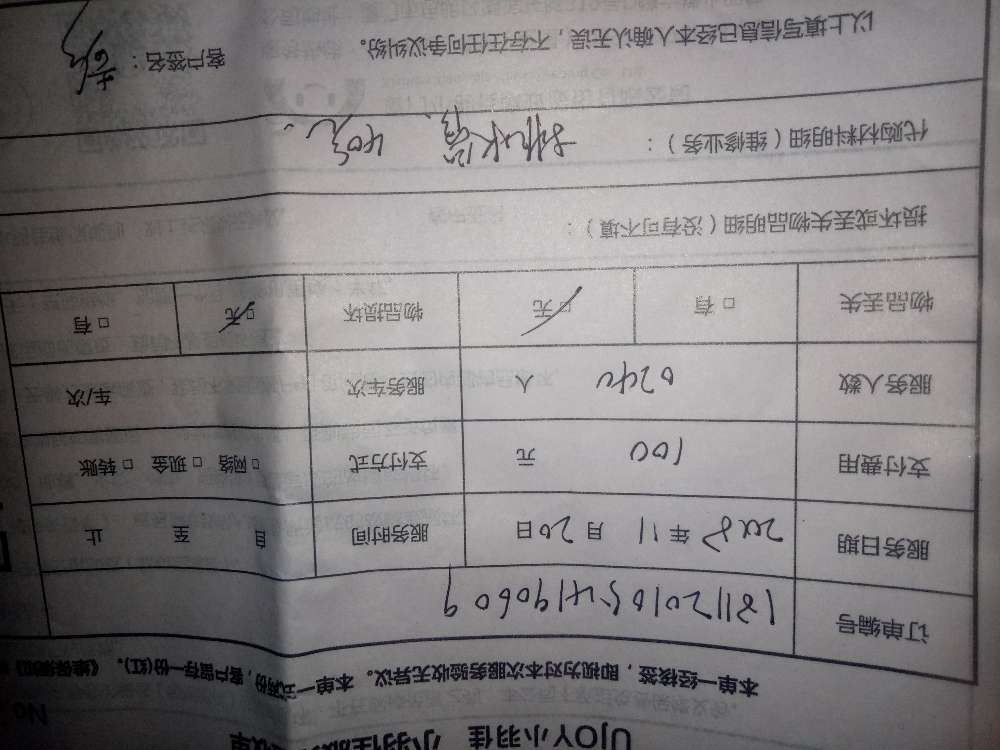 UJOY小羽佳
本单一经核签，即视为对本次服务验收无异议。本单一式两份，客户留存一份(红)。
订单编号 181120105419060 9
服务日期 2018年11月20日 服务时间 自 至 止
支付费用 100 元 支付方式 □网络 □现金 □转账
服务人数 0240 人 服务车次 车/次
物品丢失 □有 □无 物品损坏 □无 □有
损坏或丢失物品明细（没有可不填）：
代购材料明细（维修业务）： 排水管 40元
以上填写信息已经本人确认无误，不存在任何争议纠纷。 客户签名：